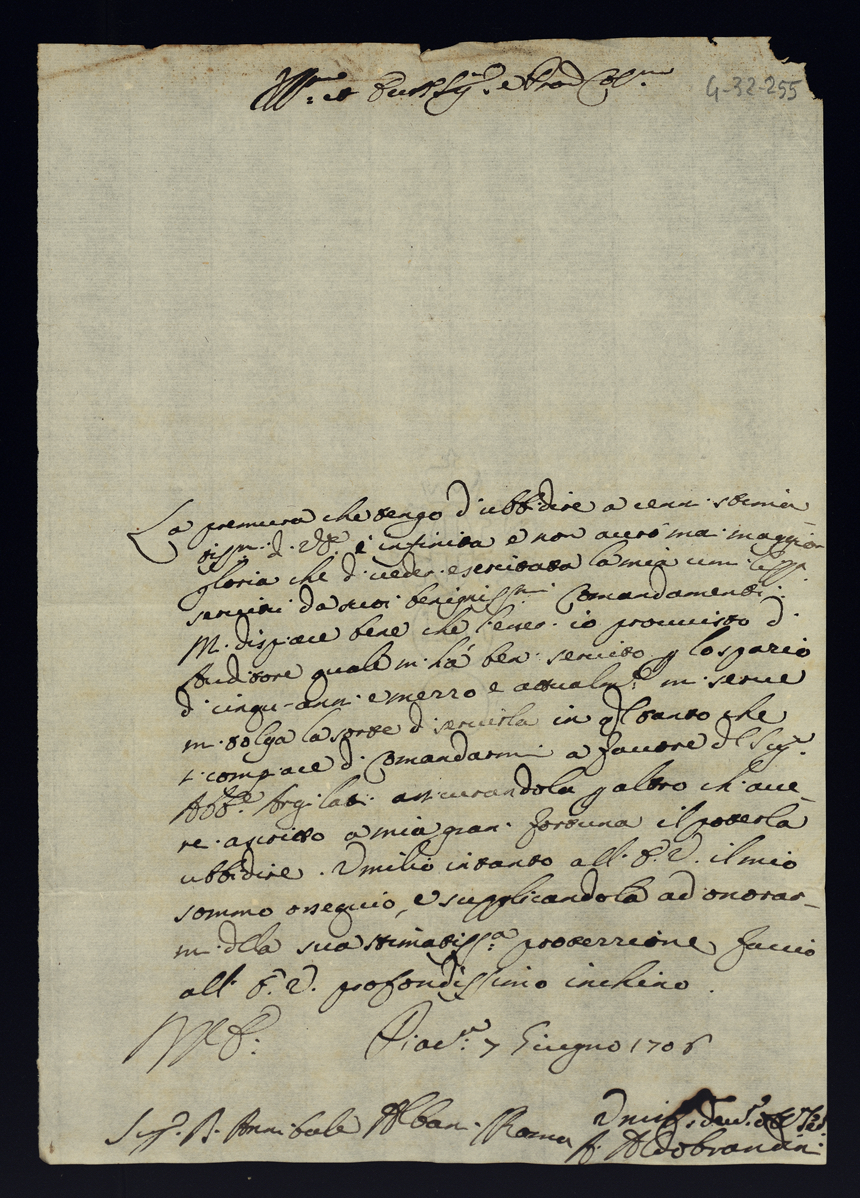 Ill.mo et Ecc.mo Sig.r e Pron Col.mo
G-32-255
La premura che tengo d'ubbidire a cenni stima-
tissmi di V.E. è infinita e non averò mai maggior
gloria che di veder esercitata la mia umiliss.a
servitù da suoi benigniss.mi Comandamenti:
Mi dispiace bene che l'esser io provvisto di
Auditore quale mi hà ben servito p lo spazio
di cinqu-anni e mezzo e attualm.te mi serve
mi tolga la sorte di servirla in q.lo tanto che
si compiace di Comandarmi a favore del Sig.r
Abb.e Argilati assicurandola p altro ch'ave-
rei ascritto a mia gran fortuna il poterla
ubbidire. Umilio intanto all' E.V. il mio
sommo ossequio, e supplicandola ad onorar-
mi della sua stimatiss.a protezzione faccio
all' E.V. profondissimo inchino.
Di V.E:
Piac.za 7 Giugno 1706
Sig.r D. Annibale Albani Roma
Umiliss.o Dev.o
A. Aldobrandini